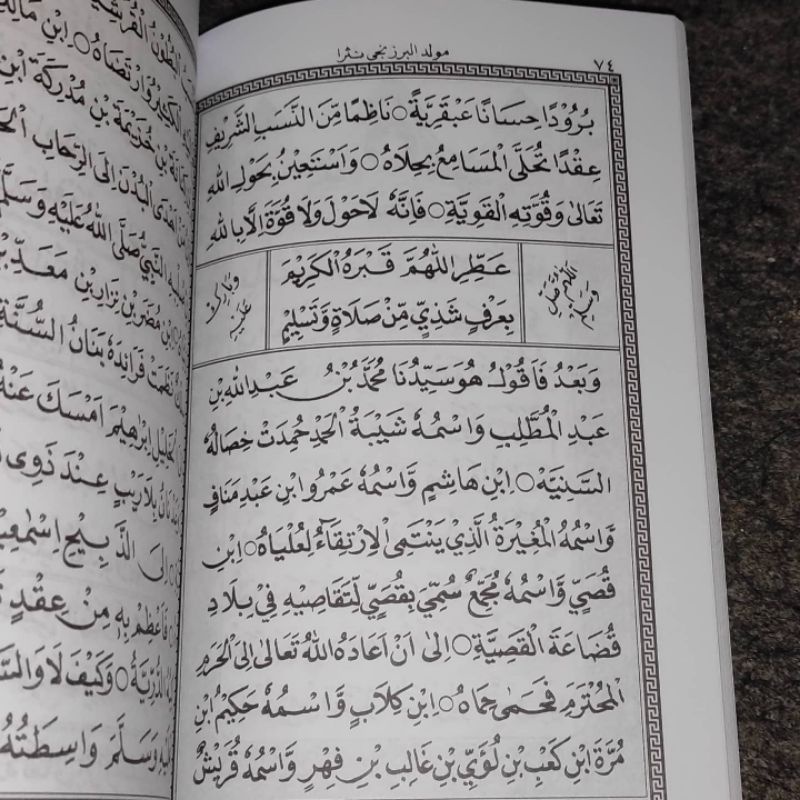 ٧٤
مولد البرزنجى نثرا
بُرُوْدًا حِسَانًا عَبْقَرِيَّةً ○ نَاظِمًا مِّنَ النَّسَبِ الشَّرِيْفِ
عِقْدًا تُحَلَّى الْمَسَامِعُ بِحِلَاهُ ○ وَاَسْتَعِيْنُ بِحَوْلِ اللهِ
تَعَالٰى وَقُوَّتِهِ الْقَوِيَّةِ ○ فَاِنَّهٗ لَاحَوْلَ وَلَا قُوَّةَ اِلَّا بِاللهِ
عَطِّرِ اللّٰهُمَّ قَبْرَهُ الْكَرِيْمَ
بِعَرْفٍ شَذِيٍّ مِّنْ صَلَاةٍ وَّتَسْلِيْمٍ
اللّٰهُمَّ صَلِّ وَسَلِّمْ
وَبَارِكْ عَلَيْهِ
وَبَعْدُ فَاَقُوْلُ هُوَ سَيِّدُنَا مُحَمَّدُ بْنُ عَبْدِ اللهِ بْنِ
عَبْدِ الْمُطَّلِبِ وَاسْمُهٗ شَيْبَةُ الْحَمْدِ حُمِدَتْ خِصَالُهُ
السَّنِيَّهْ ○ اِبْنِ هَاشِمٍ وَّاسْمُهٗ عَمْرُو ابْنِ عَبْدِ مَنَافٍ
وَّاسْمُهُ الْمُغِيْرَةُ الَّذِيْ يَنْتَمِى الْاِرْتِقَآءُ لِعُلْيَاهُ ○ اِبْنِ
قُصَيٍّ وَّاسْمُهٗ مُجَمِّعٌ سُمِّيَ بِقُصَيٍّ لِّتَقَاصِيْهِ فِيْ بِلَادِ
قُضَاعَةَ الْقَصِيَّةِ ○ اِلٰى اَنْ اَعَادَهُ اللهُ تَعَالٰى اِلَى الْحَرَمِ
الْمُحْتَرَمِ فَحَمٰى حِمَاهُ ○ اِبْنِ كِلَابٍ وَّاسْمُهٗ حَكِيْمُ ابْنِ
مُرَّةَ ابْنِ كَعْبِ بْنِ لُؤَيِّ بْنِ غَالِبِ بْنِ فِهْرٍ وَّاسْمُهٗ قُرَيْشٌ
الْبُطُوْنُ الْقُرَشِيَّةُ
الْكَثِيْرُ وَارْتَضَاهُ ○ اِبْنِ مَالِكِ
خُزَيْمَةَ بْنِ مُدْرِكَةَ ابْنِ
اَهْدَى الْبُدْنَ اِلَى الرِّحَابِ
النَّبِيُّ صَلَّى اللهُ عَلَيْهِ وَسَلَّمَ
مُضَرَ بْنِ نِزَارِ بْنِ مَعَدِّ بْنِ
نَظَمَتْ فَرَائِدَهُ بَنَانُ السُّنَّةِ
الْخَلِيْلِ اِبْرٰهِيْمَ اَمْسَكَ عَنْهُ
بِلَا رَيْبٍ عِنْدَ ذَوِى
اِلَى الذَّبِيْحِ اِسْمٰعِيْلَ
فَاَعْظِمْ بِهِ مِنْ عِقْدٍ
الدُّرِّيَّةُ ○ وَكَيْفَ لَا وَالسَّ
وَسَلَّمَ وَاسِطَتُهُ